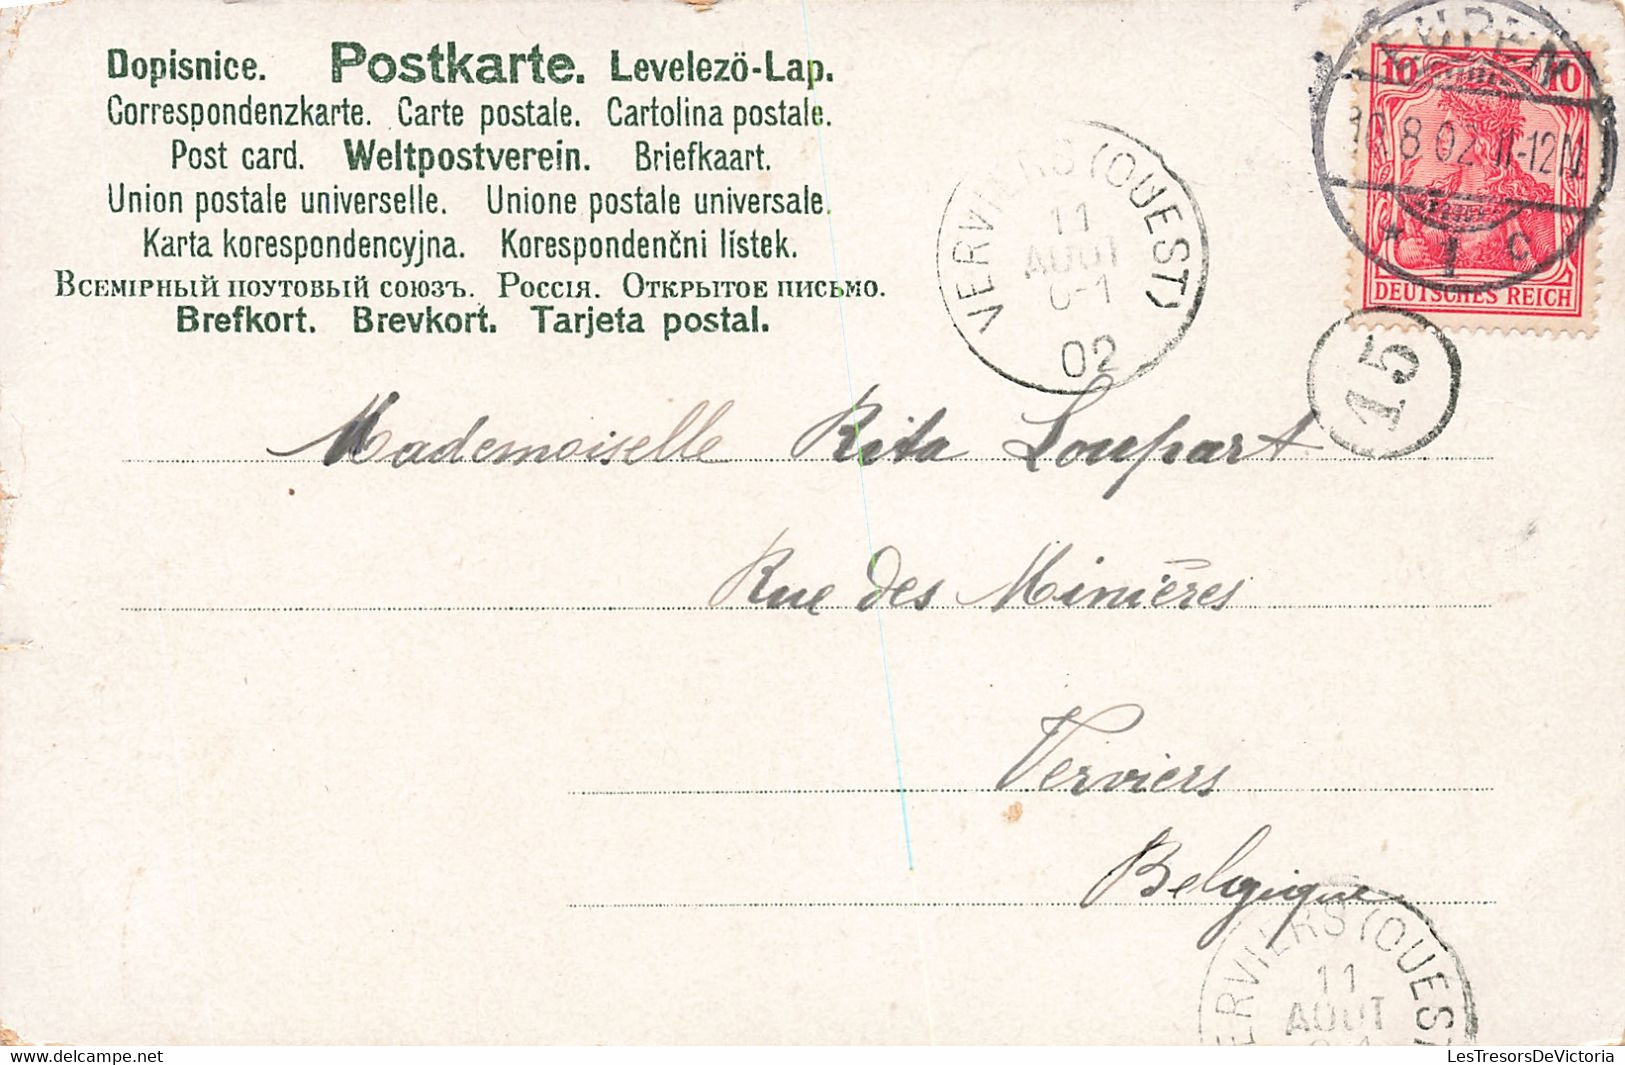 Dopisnice. Postkarte. Levelezö-Lap.
Correspondenzkarte. Carte postale. Cartolina postale.
Post card. Weltpostverein. Briefkaart.
Union postale universelle. Unione postale universale.
Karta korespondencyjna. Korespondenčni lístek.
Всемірный поутовый союзъ. Россія. Открытое письмо.
Brefkort. Brevkort. Tarjeta postal.
EUPEN
10.8.02.11-12N.
* 1 c
10 10
DEUTSCHES REICH
VERVIERS (OUEST)
11
AOUT
6-1
02
15
Mademoiselle Rita Loupart
Rue des Minières
Verviers
Belgique
VERVIERS (OUEST
11
AOUT
LesTresorsDeVictoria